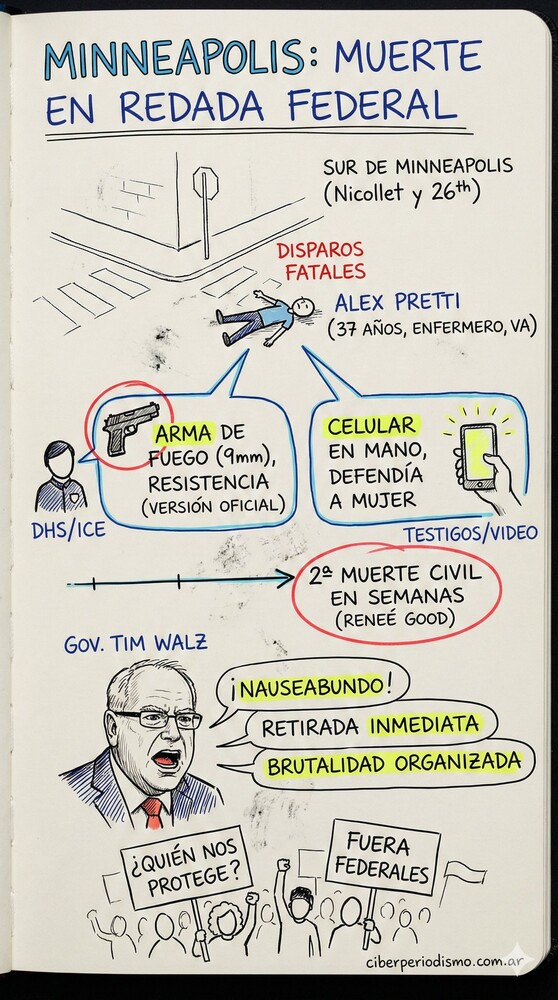 MINNEAPOLIS: MUERTE
EN REDADA FEDERAL
SUR DE MINNEAPOLIS
(Nicollet y 26th)
DISPAROS
FATALES
ALEX PRETTI
(37 AÑOS, ENFERMERO, VA)
ARMA DE
FUEGO (9mm),
RESISTENCIA
(VERSIÓN OFICIAL)
DHS/ICE
CELULAR
EN MANO,
DEFENDÍA
A MUJER
TESTIGOS/VIDEO
2ª MUERTE CIVIL
EN SEMANAS
(RENEÉ GOOD)
GOV. TIM WALZ
¡NAUSEABUNDO!
RETIRADA INMEDIATA
BRUTALIDAD ORGANIZADA
¿QUIÉN NOS
PROTEGE?
FUERA
FEDERALES
ciberperiodismo.com.ar